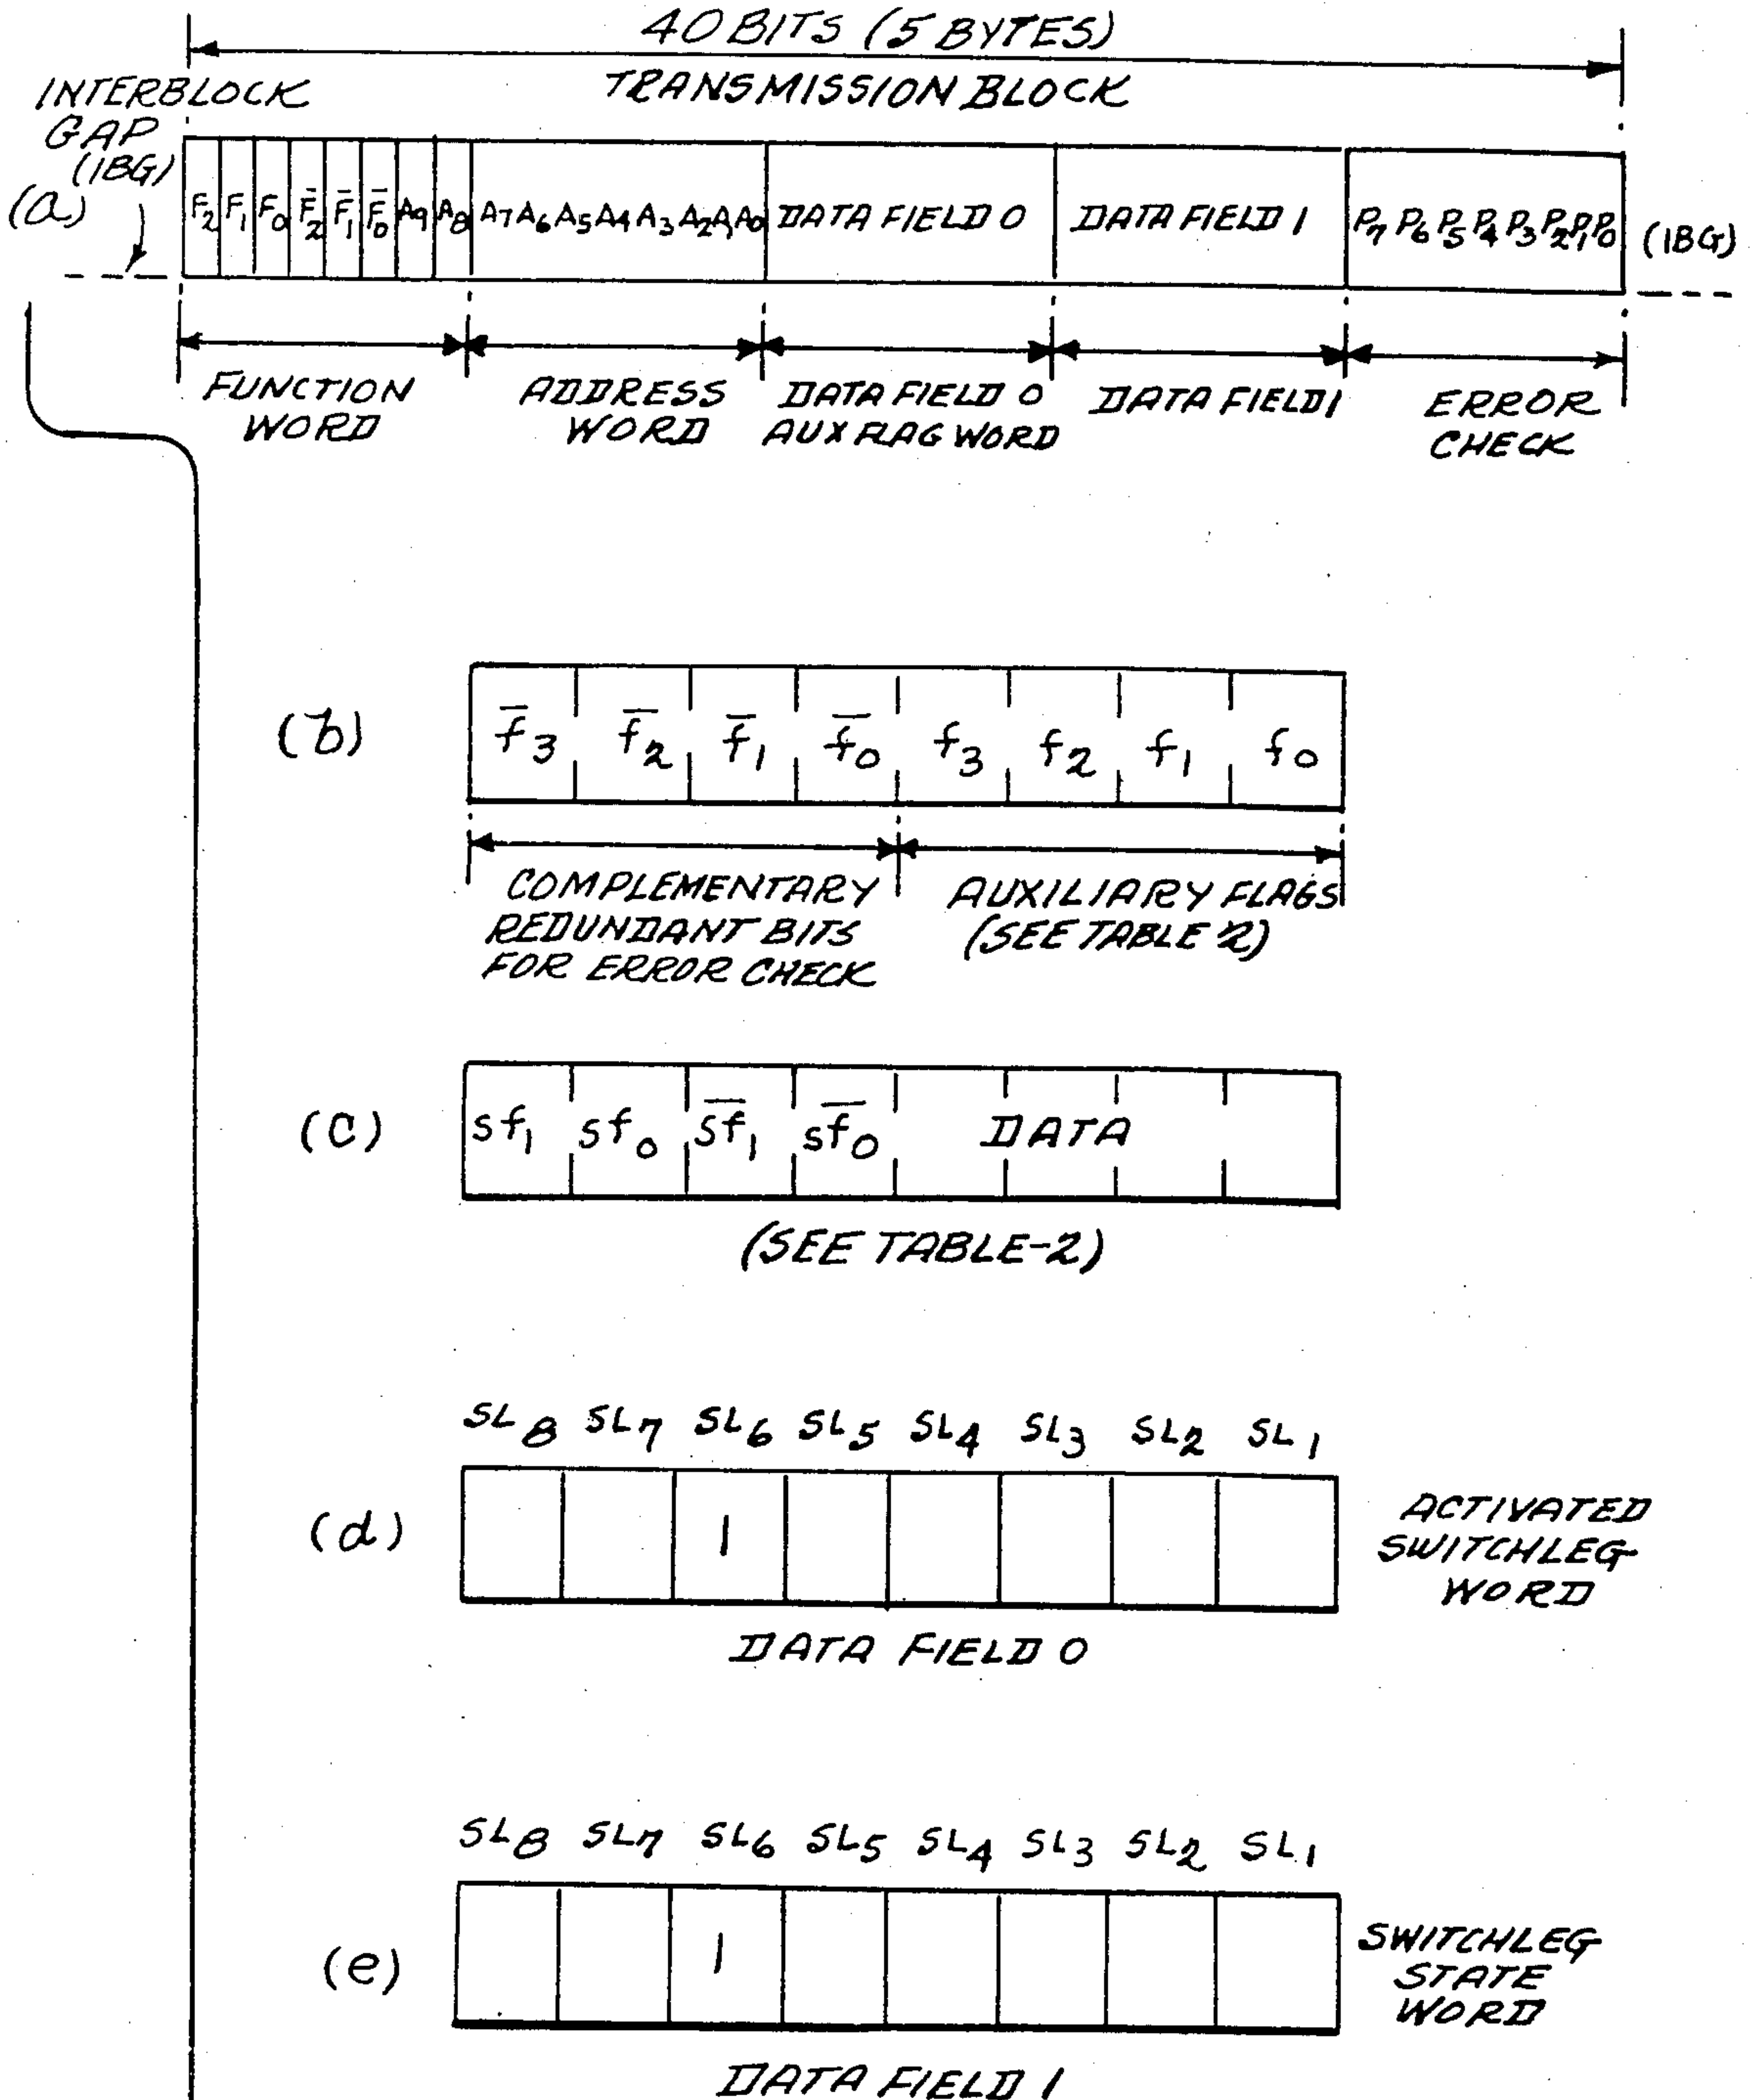 40 BITS (5 BYTES)
TRANSMISSION BLOCK
INTERBLOCK
GAP
(IBG)
(a)
F2 F1 F0 F̅2 F̅1 F̅0 A9 A8 A7 A6 A5 A4 A3 A2 A1 A0 DATA FIELD 0 DATA FIELD 1 P7 P6 P5 P4 P3 P2 P1 P0 (IBG)
FUNCTION
WORD
ADDRESS
WORD
DATA FIELD 0
AUX FLAG WORD
DATA FIELD 1
ERROR
CHECK
(b)
f̅3 f̅2 f̅1 f̅0 f3 f2 f1 f0
COMPLEMENTARY
REDUNDANT BITS
FOR ERROR CHECK
AUXILIARY FLAGS
(SEE TABLE 2)
(c)
sf1 sf0 s̅f̅1 s̅f̅0 DATA
(SEE TABLE-2)
SL8 SL7 SL6 SL5 SL4 SL3 SL2 SL1
(d)
1
ACTIVATED
SWITCHLEG
WORD
DATA FIELD 0
SL8 SL7 SL6 SL5 SL4 SL3 SL2 SL1
(e)
1
SWITCHLEG
STATE
WORD
DATA FIELD 1